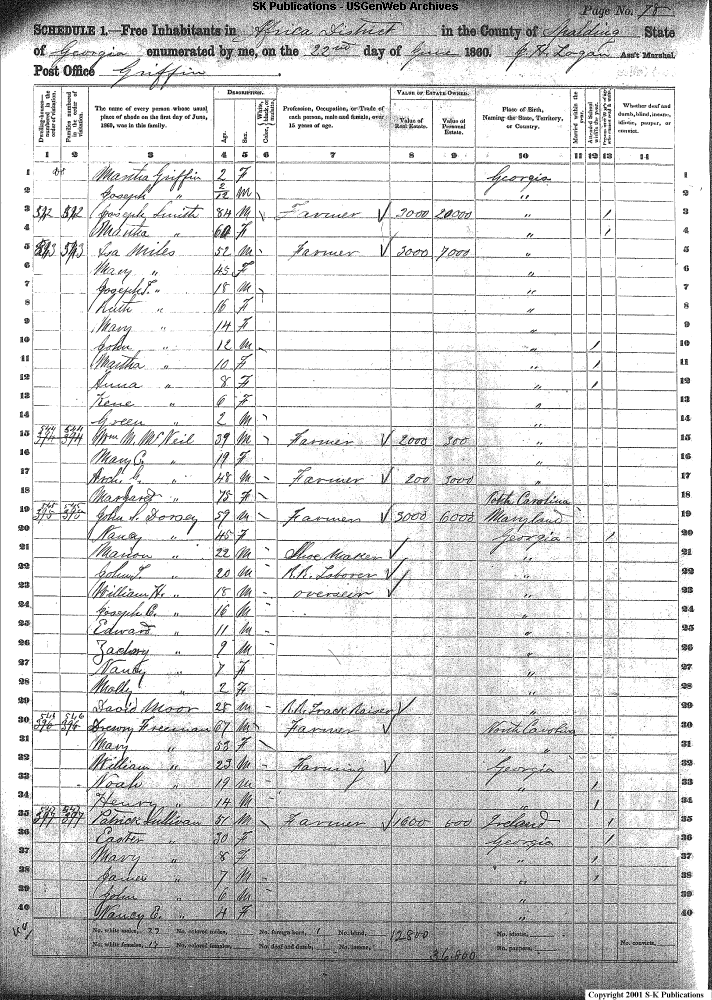 SK Publications - USGenWeb Archives
Page No. 75
SCHEDULE 1.—Free Inhabitants in Africa District in the County of Spalding State
of Georgia enumerated by me, on the 22nd day of June 1860. Logan Ass't Marshal.
Post Office Griffin
DESCRIPTION. VALUE OF ESTATE OWNED.
Dwelling-houses numbered in the order of visitation. Families numbered in the order of visitation. The name of every person whose usual place of abode on the first day of June, 1860, was in this family. Age. Sex. Color, White, black, or mulatto. Profession, Occupation, or Trade of each person, male and female, over 15 years of age. Value of Real Estate. Value of Personal Estate. Place of Birth, Naming the State, Territory, or Country. Married within the year. Attended School within the year. Whether deaf and dumb, blind, insane, idiotic, pauper, or convict.
1 2 3 4 5 6 7 8 9 10 11 12 13 14
1 Martha Griffin 2 F Georgia 1
2 Joseph " 2/12 M " 2
3 542 542 Joseph Smith 84 M Farmer 3000 20000 " / 3
4 Martha " F " / 4
5 543 543 Miles 52 M Farmer 3000 7000 " 5
6 Mary " 45 F " 6
7 Joseph T. " 18 M " 7
8 Ruth " 16 F " 8
9 Mary " 14 F " 9
10 John " 12 M " / 10
11 Martha " 10 F " / 11
12 Anna " 8 F " / 12
13 " 6 F " 13
14 Green " 2 M " 14
15 544 544 Wm M. McNeil 39 M Farmer 2000 300 " 15
16 Mary C. " 19 F " 16
17 Arch. " 48 M Farmer 200 3000 " 17
18 Margaret " 75 F North Carolina 18
19 545 545 John S. Dorsey 59 M Farmer 3000 6000 Maryland 19
20 Nancy " 45 F Georgia / 20
21 Marion " 22 M Shoe Maker " 21
22 John T. " 20 M R.R. Laborer " 22
23 William H. " 18 M overseer " 23
24 Joseph C. " 16 M " 24
25 Edward " 11 M " 25
26 Zachary " 9 M " 26
27 Nancy " 7 F " 27
28 Molly " 2 F " 28
29 David Moor 28 M R.R. Track Raiser " 29
30 546 546 Drewry Freeman 67 M Farmer North Carolina 30
31 Mary " 53 F " " 31
32 William " 23 M Farming Georgia 32
33 Noah " 19 M " / 33
34 Henry " 14 M " / 34
35 547 547 Patrick Sullivan 51 M Farmer 1600 600 Ireland / 35
36 Easter " 30 F Georgia / 36
37 Mary " 8 F " / 37
38 " 7 M " / 38
39 John " 6 M " 39
40 Nancy E. " 4 F " 40
No. white males, No. colored males, No. foreign born, 1 No. blind, 12800 No. idiotic,
No. white females, 17 No. colored females, No. deaf and dumb, No. insane, 36.800 No. paupers, No. convicts,
Copyright 2001 S-K Publications